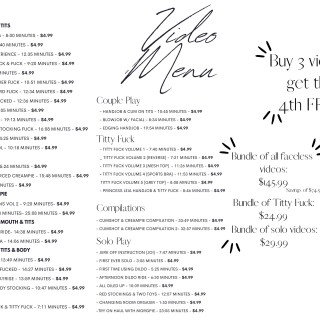 TITS
- 8:00 MINUTES - $4.99
:40 MINUTES - $4.99
ERIENCE - 12:25 MINUTES - $4.99
CK & FUCK - 9:20 MINUTES - $4.99
MINUTES - $4.99
ER FUCK - 10:51 MINUTES - $4.99
- $4.99
CKED - 12:56 MINUTES - $4.99
MINUTES - $4.99
- 19:13 MINUTES - $4.99
STOCKING FUCK - 16:08 MINUTES - $4.99
MINUTES - $4.99
- 10:18 MINUTES - $4.99
MINUTES - $4.99
CED CREAMPIE - 10:48 MINUTES - $4.99
MINUTES - $4.99
PIE
NS VOL 2 - 9:28 MINUTES - $4.99
MINUTES - $4.99
MOUTH & TITS
RIDE - 14:38 MINUTES - $4.99
- 14:06 MINUTES - $4.99
TITS & BODY
13:49 MINUTES - $4.99
FUCKED - 16:27 MINUTES - $4.99
MINUTES - $4.99
DY STOCKING - 10:47 MINUTES - $4.99
- $4.99
K & TITTY FUCK - 7:11 MINUTES - $4.99
Video
Menu
Couple Play
- HANDJOB & CUM ON TITS - 10:45 MINUTES - $4.99
- BLOWJOB W/ FACIAL - 8:36 MINUTES - $4.99
- EDGING HANDJOB - 19:54 MINUTES - $4.99
Titty Fuck
- TITTY FUCK VOLUME 1 - 7:40 MINUTES - $4.99
- TITTY FUCK VOLUME 2 (REVERSE) - 7:21 MINUTES - $4.99
- TITTY FUCK VOLUME 3 (MESH TOP) - MINUTES - $4.99
- TITTY FUCK VOLUME 4 (SPORTS BRA) - 11:53 MINUTES - $4.99
TITTY FUCK VOLUME 5 (GREY TOP) - MINUTES - $4.99
- PRINCESS LEIA, HANDJOB & TITTY FUCK - MINUTES - $4.99
Compilations
- CUMSHOT & CREAMPIE COMPILATION - MINUTES - $4.99
- CUMSHOT & CREAMPIE COMPILATION 2 - MINUTES - $4.99
Solo Play
- JERK OFF INSTRUCTION (JOI) - 7:47 MINUTES - $4.99
- FIRST EVER SOLO - MINUTES - $4.99
- FIRST TIME USING DILDO - MINUTES - $4.99
- AFTERNOON DILDO RIDE - MINUTES - $4.99
- ALL OILED UP - 10:09 MINUTES - $4.99
- RED STOCKINGS & TWO TOYS - 12:07 MINUTES - $4.99
- CHANGING ROOM ORGASM - MINUTES - $4.99
- TOY RIDE WITH MOREPIE - MINUTES - $4.99
Buy 3 vi
get th
4th FR
Bundle of all faceless
videos:
$145.99
Savings of
Bundle of Titty Fuck:
$24.99
Bundle of solo videos:
$29.99